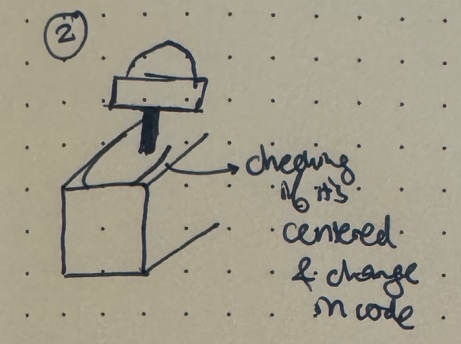 2
checking
if it's
centered
& change
in code